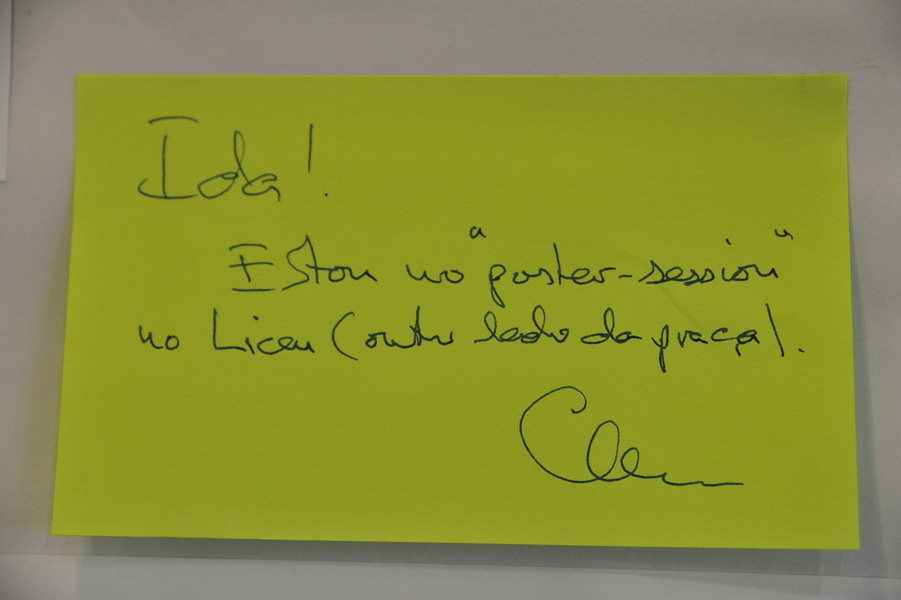 Ida!
Estou no "poster-session"
no Liceu (outro lado da praça).